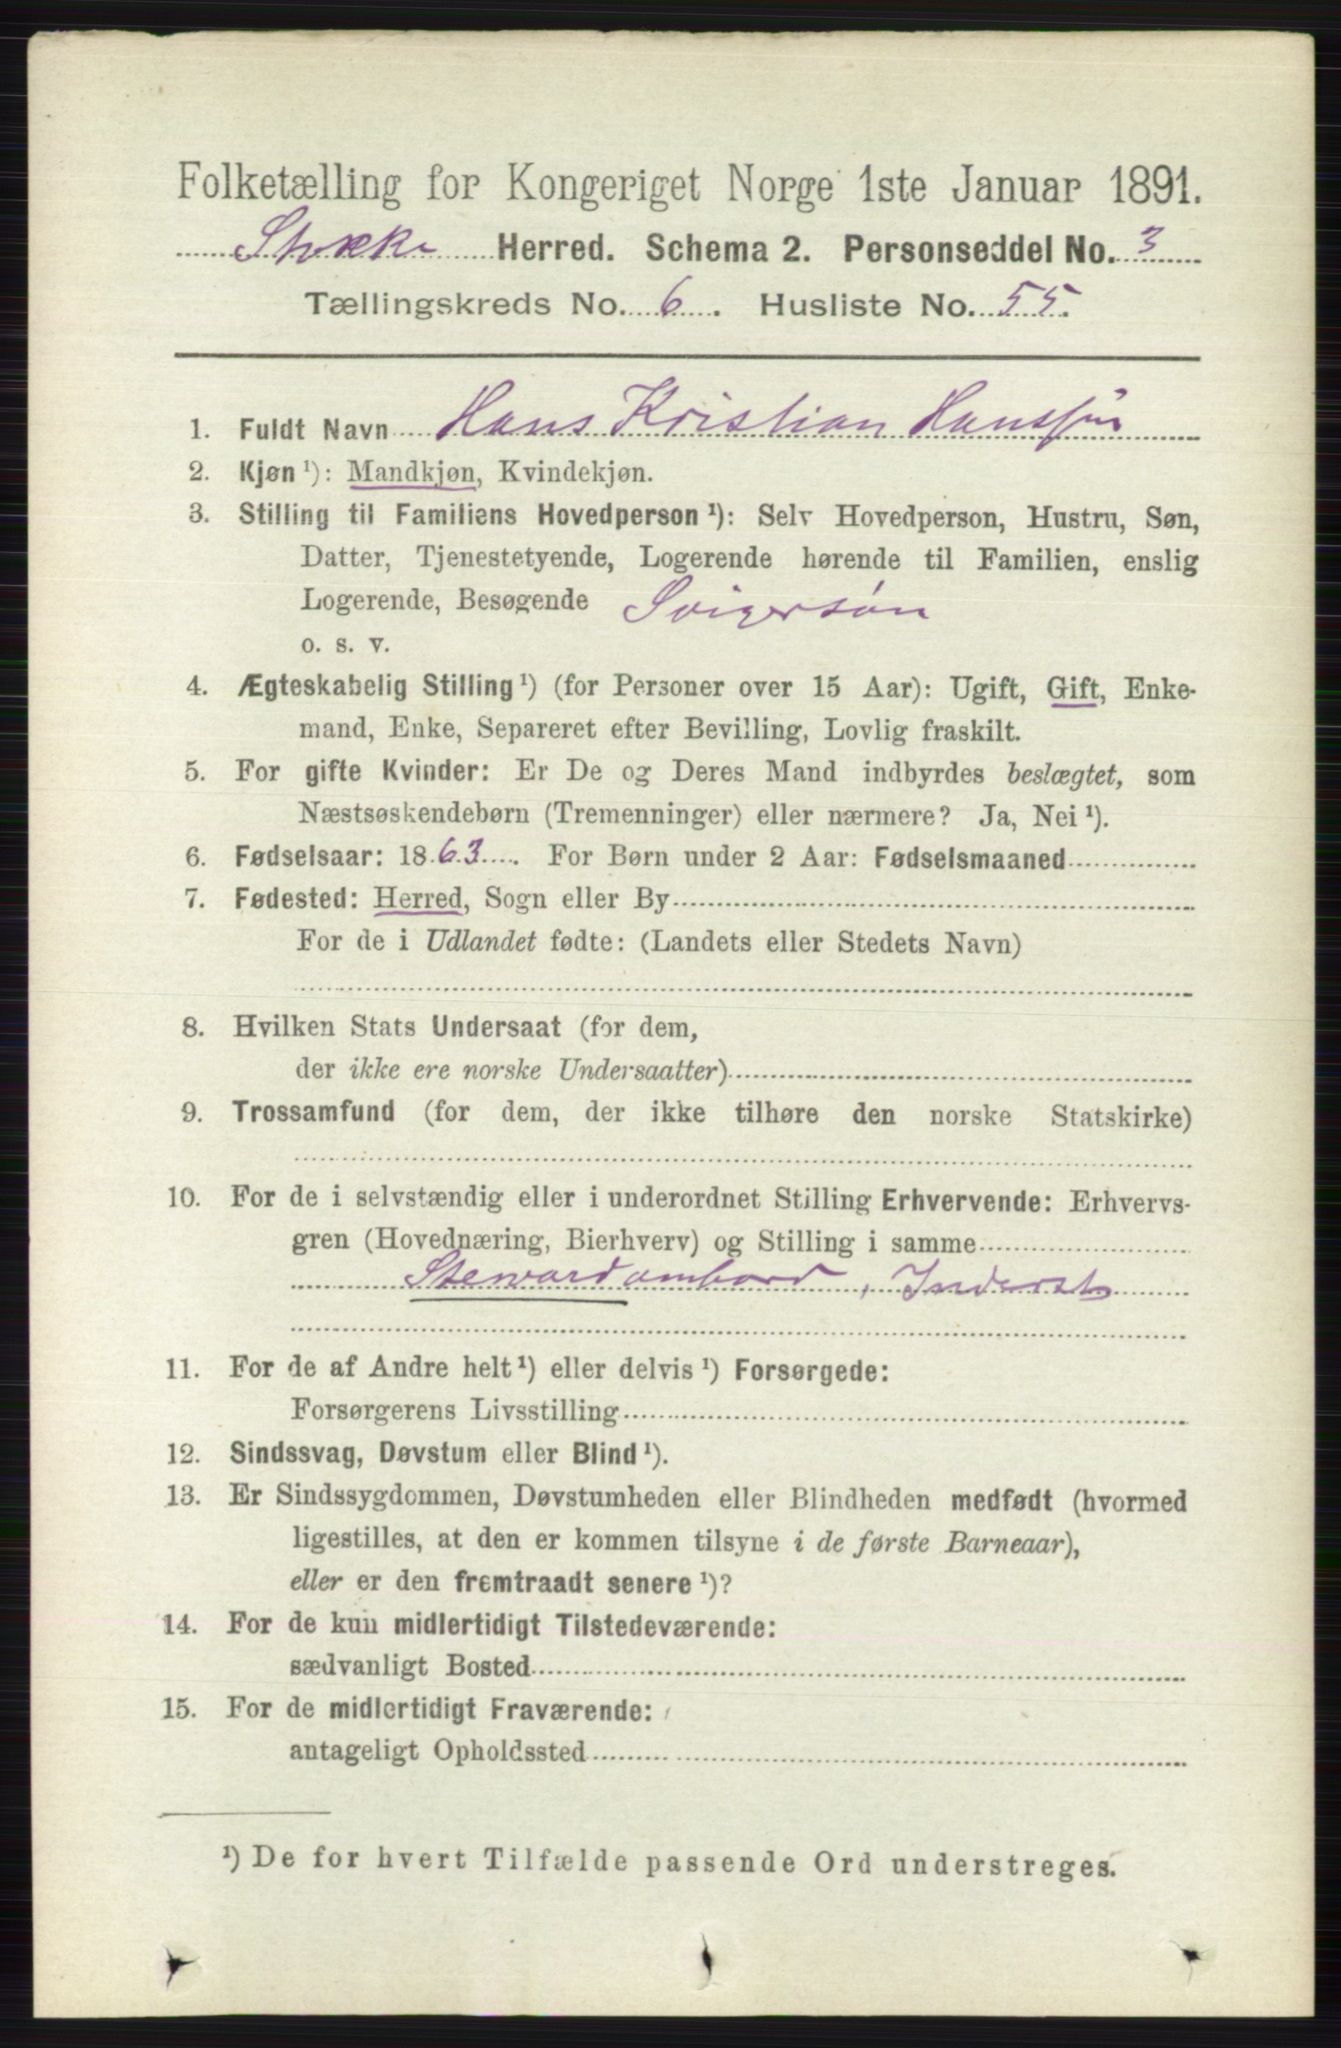 Folketælling for Kongeriget Norge 1ste Januar 1891.
Stokke Herred. Schema 2. Personseddel No. 3
Tællingskreds No. 6. Husliste No. 55.
1. Fuldt Navn Hans Kristian Hanssøn
2. Kjøn ¹): Mandkjøn, Kvindekjøn.
3. Stilling til Familiens Hovedperson ¹): Selv Hovedperson, Hustru, Søn,
Datter, Tjenestetyende, Logerende hørende til Familien, enslig
Logerende, Besøgende Svigersøn
o. s. v.
4. Ægteskabelig Stilling ¹) (for Personer over 15 Aar): Ugift, Gift, Enke-
mand, Enke, Separeret efter Bevilling, Lovlig fraskilt.
5. For gifte Kvinder: Er De og Deres Mand indbyrdes beslægtet, som
Næstsøskendebørn (Tremenninger) eller nærmere? Ja, Nei ¹).
6. Fødselsaar: 1863. For Børn under 2 Aar: Fødselsmaaned
7. Fødested: Herred, Sogn eller By
For de i Udlandet fødte: (Landets eller Stedets Navn)
8. Hvilken Stats Undersaat (for dem,
der ikke ere norske Undersaatter)
9. Trossamfund (for dem, der ikke tilhøre den norske Statskirke)
10. For de i selvstændig eller i underordnet Stilling Erhvervende: Erhvervs-
gren (Hovednæring, Bierhverv) og Stilling i samme
Steward ombord, Inderst
11. For de af Andre helt ¹) eller delvis ¹) Forsørgede:
Forsørgerens Livsstilling
12. Sindssvag, Døvstum eller Blind ¹).
13. Er Sindssygdommen, Døvstumheden eller Blindheden medfødt (hvormed
ligestilles, at den er kommen tilsyne i de første Barneaar),
eller er den fremtraadt senere ¹)?
14. For de kun midlertidigt Tilstedeværende:
sædvanligt Bosted
15. For de midlertidigt Fraværende:
antageligt Opholdssted
¹) De for hvert Tilfælde passende Ord understreges.